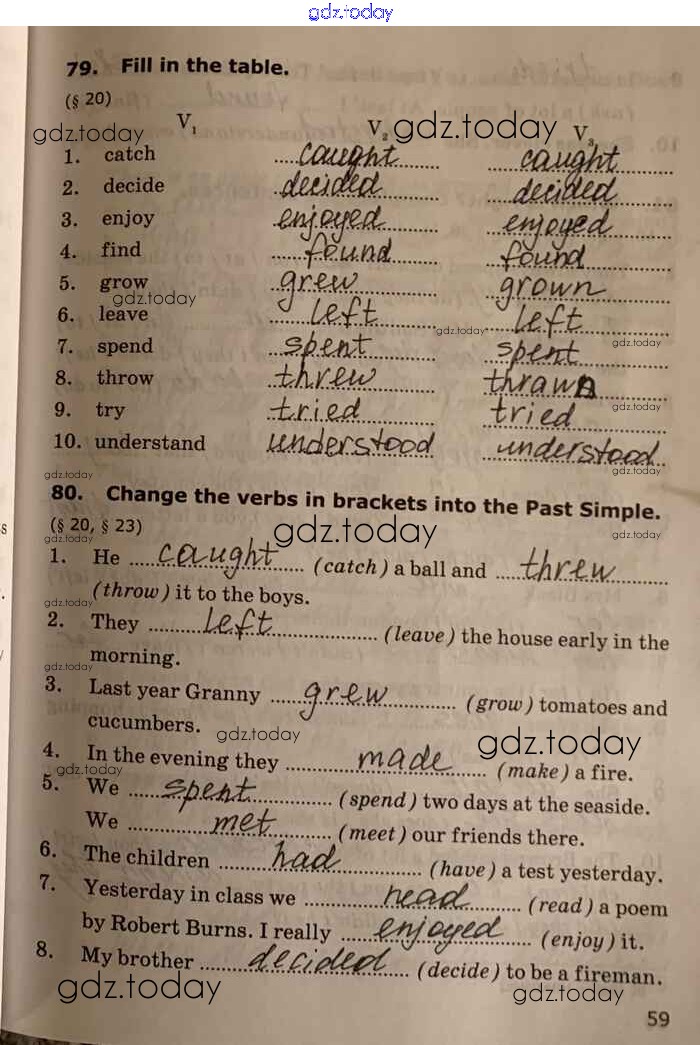 gdz.today
79. Fill in the table.
(§ 20)
V1 V2 V3
gdz.today gdz.today
1. catch caught caught
2. decide decided decided
3. enjoy enjoyed enjoyed
4. find found found
5. grow grew grown
gdz.today
6. leave left left
gdz.today gdz.today
7. spend spent spent
8. throw threw thrawn
gdz.today
9. try tried tried
10. understand understood understood
gdz.today gdz.today
80. Change the verbs in brackets into the Past Simple.
(§ 20, § 23)
gdz.today gdz.today gdz.today
1. He caught (catch) a ball and threw
(throw) it to the boys.
gdz.today gdz.today
2. They left (leave) the house early in the
morning.
gdz.today
3. Last year Granny grew (grow) tomatoes and
cucumbers.
gdz.today gdz.today
4. In the evening they made (make) a fire.
gdz.today
5. We spent (spend) two days at the seaside.
We met (meet) our friends there.
6. The children had (have) a test yesterday.
7. Yesterday in class we read (read) a poem
by Robert Burns. I really enjoyed (enjoy) it.
8. My brother decided (decide) to be a fireman.
gdz.today gdz.today
59